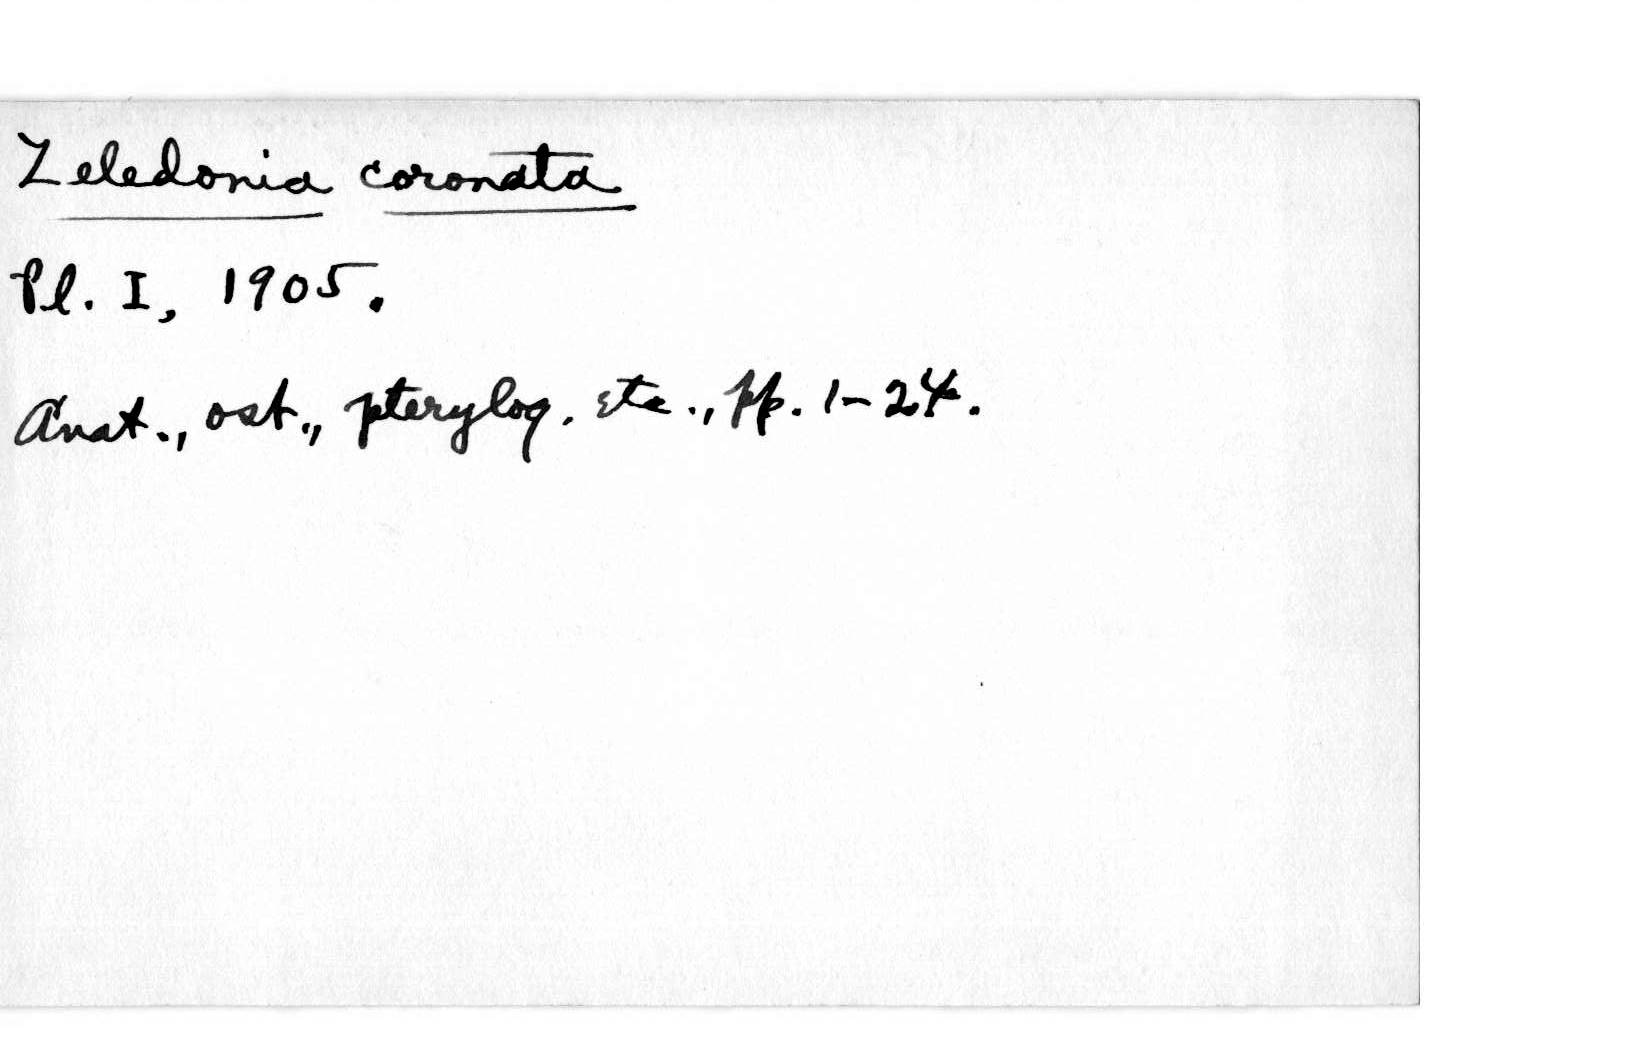 Zeledonia coronata
Pl. I, 1905.
Anat., ost., pterylog. etc., pp. 1-24.